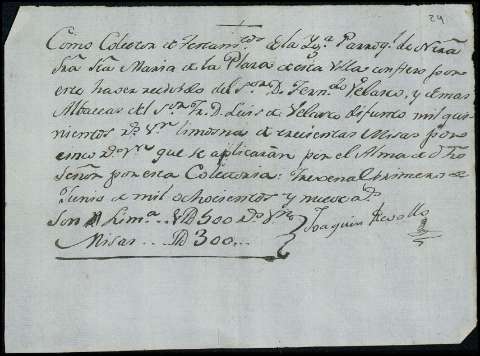 24
Como Colector de Testamtos de la Yga Parroql de Nrã
Srã Stã Maria de la Plaza de esta Villa confieso por
este haver recivido del Sor Dn Ferndo Velasco, y demas
Albaceas del Sor Fr. D. Luis de Velasco difunto mil qui-
nientos rs vn limosna de trecientas Misas por
cinco rs vn que se aplicarán por el Alma de dho
Señor por esta Colecturia: primero de
Junio de mil ochocientos y nueve as
Son Lima 1500 rs vn
Misas... 300... Joaquin Revollo